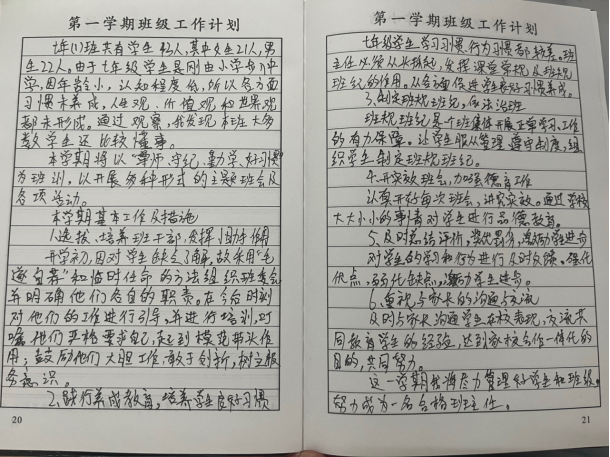 第一学期班级工作计划
七年(1)班共有学生43人,其中女生21人,男
生22人。由于七年级学生是刚由小学与中
学,因年龄小,认知程度低,所以各方面
习惯未养成,人生观、价值观和世界观
都未形成。通过观察,我发现本班大多
数学生还比较懂事。
本学期将以“尊师、守纪、勤学、好习惯”
为班训,以开展多种形式的主题班会及
各项活动。
本学期基本工作及措施
1、选拔、培养班干部,发挥助手作用
开学初,因对学生缺乏了解,故采用“毛
遂自荐”和临时任命的方法组织班委会
并明确他们各自的职责。在今后时刻
对他们的工作进行引导,并进行培训,叮
嘱他们严格要求自己,起到模范带头作
用;鼓励他们大胆工作,敢于创新,树立服
务意识。
2、践行养成教育,培养学生良好习惯
20
第一学期班级工作计划
七年级学生学习习惯、行为习惯都较差。班
主任以后从头抓起,发挥课堂常规及班规
班纪的作用。从各方面促进学生好习惯养成。
3、制定班规班纪,依法治班
班规班纪是个班集体开展正常学习、工作
的有力保障。让学生服从管理,遵守制度,组
织学生制定班规班纪。
4、开实效班会,加强德育工作
认真开好每次班会,讲究实效。通过学校
大大小小的事情对学生进行品德教育。
5、及时总结评价,奖优罚劣,激励学生进步
对学生的学习和行为进行及时反馈。强化
优点,弱化缺点,激励学生进步。
6、重视与家长的沟通与交流
及时与家长沟通学生在校表现,交流共
同教育学生的经验,达到家校合作一体化的
目的,共同努力。
这一学期我将尽力管理好学生和班级。
努力成为一名合格班主任。
21